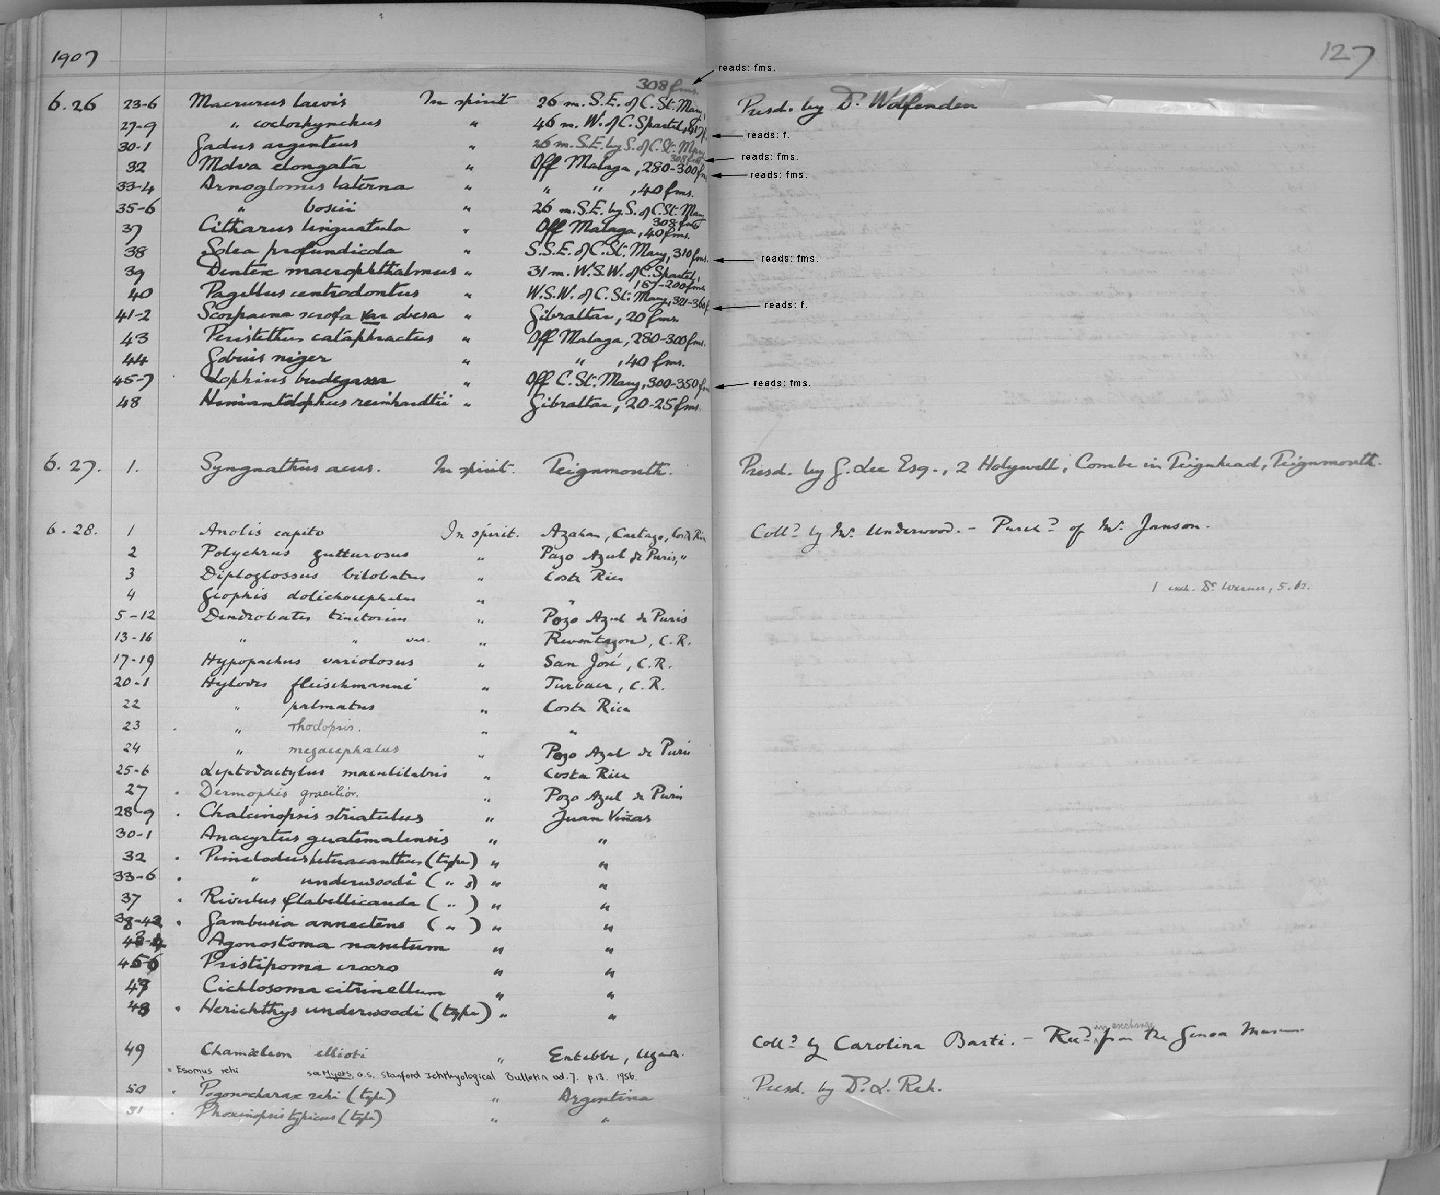 1907 127
308 fms. reads: fms.
6.26 23-6 Macrurus laevis In spirit 26 m. S.E. of C. St. Mary, Presd. by Dr. Wolfenden
27-9 " coelorhynchus " 46 m. W. of C. Spartel,
30-1 Gadus argenteus " 26 m. S.E. by S. of C. St. Mary reads: f.
308 fms reads: fms.
32 Molva elongata " Off Malaga, 280-300 fms reads: fms.
33-4 Arnoglossus laterna " " " , 40 fms.
35-6 " boscii " 26 m. S.E. by S. of C. St. Mary
308 fms
37 Citharus linguatula " Off Malaga, 40 fms.
38 Solea profundicola " S.S.E. of C. St. Mary, 310 fms. reads: fms.
39 Dentex macrophthalmus " 31 m. W.S.W. of C. Spartel,
-200 fms.
40 Pagellus centrodontus " W.S.W. of C. St. Mary, 321-
41-2 Scorpaena scrofa var " Gibraltar, 20 fms. reads: f.
43 Peristethus cataphractus " Off Malaga, 280-300 fms.
44 Gobius niger " " , 40 fms.
45-7 Lophius budegassa " Off C. St. Mary, 300-350 fm reads: fms.
48 Himantolophus reinhardtii " Gibraltar, 20-25 fms.
6.27. 1. Syngnathus acus. In spirit. Teignmouth. Presd. by G. Lee Esq., 2 Holywell, Combe in Teignhead, Teignmouth.
6.28. 1 Anolis capito In spirit. Azahar, Cartago, Costa Rica Colld. by Mr. Underwood. - Purchd. of Mr. Janson.
2 Polychrus gutturosus " Pozo Azul de Pirris, "
3 Diploglossus bilobatus " Costa Rica
4 Geophis dolichocephalus " " 1 exch. Dr. Werner, 5.
5-12 Dendrobates tinctorius " Pozo Azul de Pirris
13-16 " " var. " Reventazon, C.R.
17-19 Hypopachus variolosus " San José, C.R.
20-1 Hylodes fleischmanni " C.R.
22 " palmatus " Costa Rica
23 " rhodopis. " "
24 " megacephalus " Pozo Azul de Pirris
25-6 Leptodactylus maculilabris " Costa Rica
27 Dermophis gracilior. " Pozo Azul de Pirris
28-9 Chalcinopsis striatulus " Juan Viñas
30-1 Anacyrtus guatemalensis " "
32 Pimelodus heteracanthus (type) " "
33-6 " underwoodi ( " s) " "
37 Rivulus flabellicauda ( " ) " "
38-42 Gambusia annectens ( " ) " "
43-4 Agonostoma nasutum " "
45-6 Pristipoma crocro " "
47 Cichlosoma citrinellum " "
48 Herichthys underwoodi (type) " "
49 Chamaeleon ellioti " Entebbe, Uganda. Colld. by Carolina Barti. - Recd. in exchange from the Genoa Museum
Esomus rehi see Myers, G.S. Stanford Ichthyological Bulletin vol. 7. p 13. 1956.
50 Pogonocharax rehi (type) " Argentina Presd. by D. L. Reh.
51 Phoxinopsis typicus (type) " "